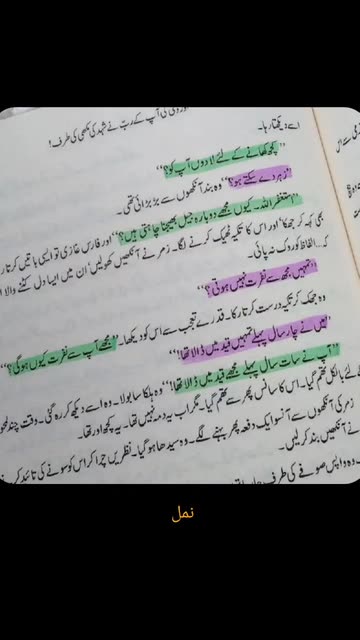 اور وحی کی آپ کے رب نے شہد کی مکھی کی طرف!
اسے دیکھتا رہا۔
"کچھ کھانے کے لئے لا دوں آپ کو؟"
"زہر دے سکتے ہو؟" وہ بند آنکھوں سے بڑبڑائی تھی۔
"استغفراللہ۔ کیوں مجھے دوبارہ جیل بھیجنا چاہتی ہیں؟" اور فارس غازی تو ایسی باتیں کرتا
بھی کہہ کر جھکا' اور اس کا تکیہ ٹھیک کرنے لگا۔ زمر نے آنکھیں کھولیں' ان میں ایسا دل کٹنے والا
کہ... الفاظ کو روک نہ پائی۔
"تمہیں مجھ سے نفرت نہیں ہوتی؟"
وہ جھک کر تکیہ درست کرتا رکا۔ قدرے تعجب سے اس کو دیکھا۔ "مجھے آپ سے نفرت کیوں ہوگی؟"
"میں نے چار سال پہلے تمہیں قید میں ڈالا تھا!"
"آپ نے سات سال پہلے مجھے قید میں ڈالا تھا!" وہ ہلکا سا بولا۔ وہ اسے دیکھ کر رہ گئی۔ وقت چند لمحوں
لئے بالکل تھم گیا۔ اس کا سانس پھر سے تھم گیا۔ مگر اب یہ دمہ نہیں تھا۔ یہ کچھ اور تھا۔
زمر کی آنکھوں سے آنسو ایک دفعہ پھر بہنے لگے۔ وہ سیدھا ہو گیا۔ نظریں چرا کر اس کو سونے کی تائید کر
نے آنکھیں بند کر لیں۔
وہ واپس صوفے کی طرف
نمل